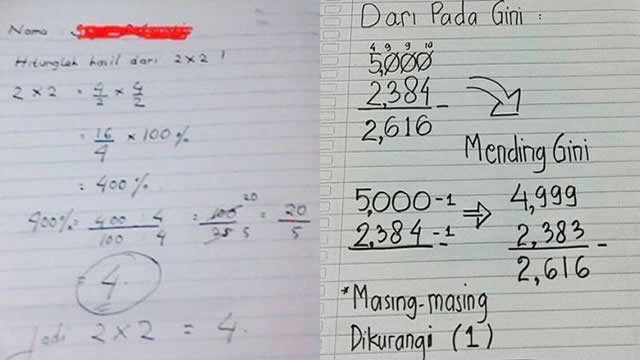 Nama :
Hitunglah hasil dari 2x2 !
2 x 2 = 4/2 x 4/2
= 16/4 x 100%
= 400%
400% = 400 : 4 / 100 : 4 = 100 20 / 25 5 = 20/5
= 4.
Jadi 2x2 = 4.
Dari Pada Gini :
4 9 9 10
5,000
2,384 -
2,616
Mending Gini
5,000 -1 ⇒ 4,999
2,384 -1 2,383 -
2,616
*Masing-masing
Dikurangi (1)